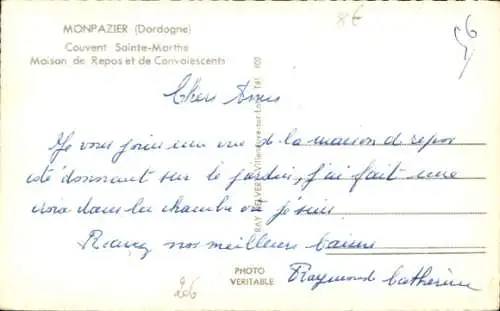 MONPAZIER (Dordogne)
Couvent Sainte-Marthe
Maison de Repos et de Convalescents
56
Chers Amis
Je vous joins une vue de la maison de repos
côté donnant sur le jardin, j'ai fait une
croix dans la chambre où je suis
nos meilleurs baisers
Raymonde Catherine
RAY DELVERT, Villeneuve-sur-Lot Tél.
PHOTO
VERITABLE
206